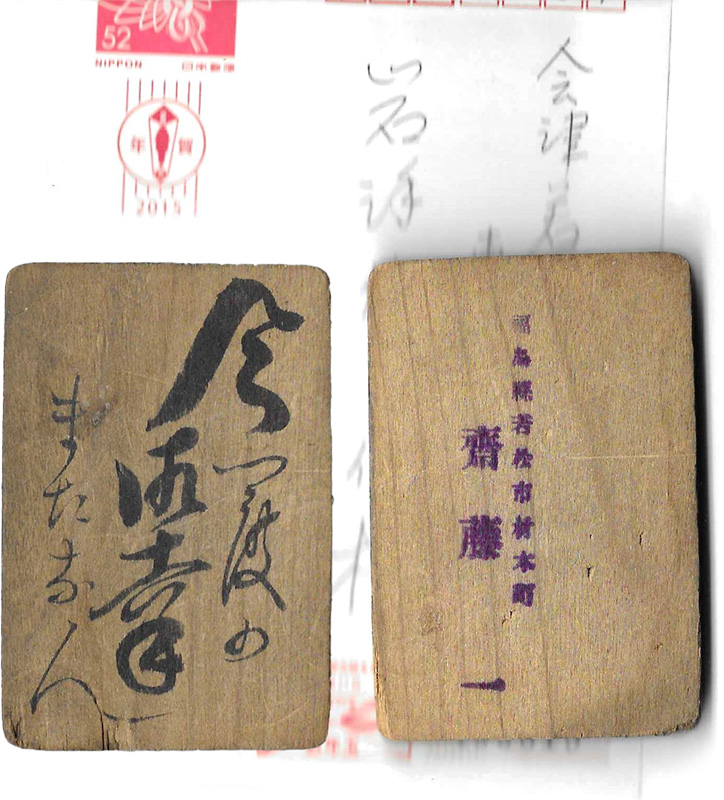 52
NIPPON 日本郵便
年賀
2015
会津若
今一度の
御幸
またなん
福島縣若松市材木町
齋藤一